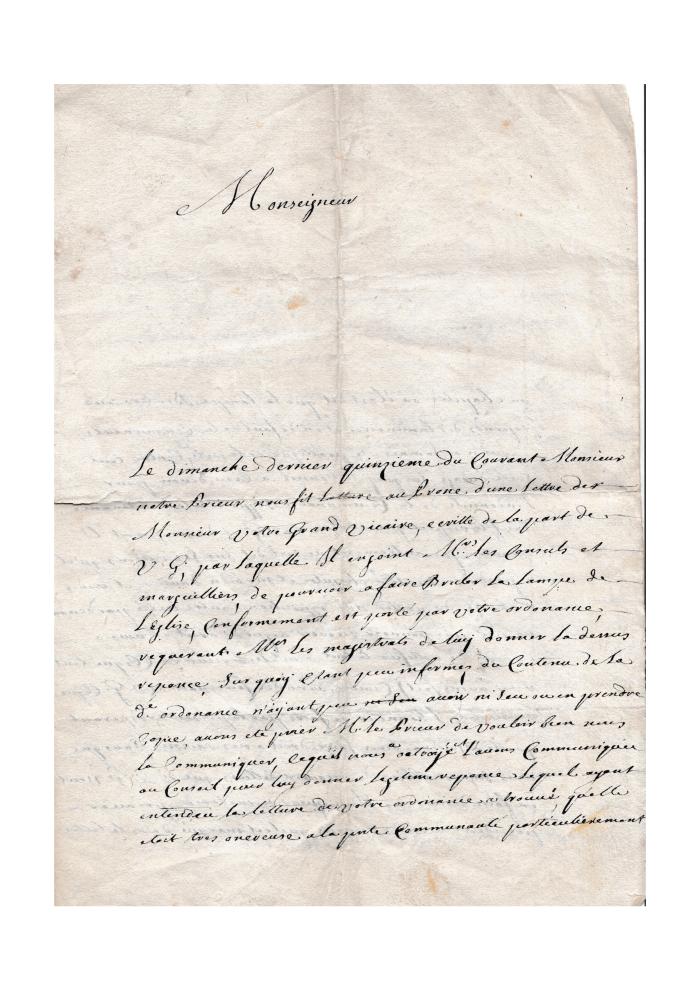 Monseigneur
Le dimanche dernier quinzieme du Courant Monsieur
notre Prieur nous fit Letture au Prone d'une Lettre de
Monsieur votre Grand Vicaire, ecritte de la part de
V G, par laquelle Il enjoint Mrs les Consuls et
marguilliers, de pourvoir a faire Bruler La Lampe de
LEglise, Conformement est porté par votre ordonance,
requerant Mrs Les magistrats de luy donner la dessus
reponce, Sur quoy Etant peu informes du Contenu de La
de ordonance n'ayant peu avoir ni Leu ou en prendre
Copie, avons eté prier Mr le Prieur de vouloir bien nous
La Communiquer, Lequel nous a Lavons Communiquée
au Conseil pour luy donner legitime reponce Lequel ayant
entendeu la letture de votre ordonance a trouvé, qu'elle
etoit tres onereuse a la pnte Communauté particulierement